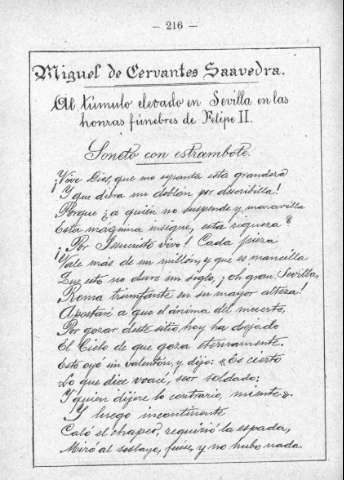 — 216 —
Miguel de Cervantes Saavedra.
Al túmulo elevado en Sevilla en las
honras fúnebres de Felipe II.
Soneto con estrambote.
¡Vive Dios, que me espanta esta grandeza
Y que diera un doblón por describilla!
Porque ¿a quién no suspende y maravilla
Esta máquina insigne, esta riqueza?
¡Por Jesucristo vivo! Cada pieza
Vale más de un millón, y que es mancilla
Que esto no dure un siglo, ¡oh gran Sevilla,
Roma triunfante en su mayor alteza!
Apostaré a que el ánima del muerto,
Por gozar deste sitio, hoy ha dejado
El Cielo de que goza eternamente.
Esto oyó un valentón, y dijo: «Es cierto
Lo que dice voacé, seor soldado;
Y quien dijere lo contrario, miente».
Y luego incontinente
Caló el chapeo, requirió la espada,
Miró al soslayo, fuese, y no hubo nada.